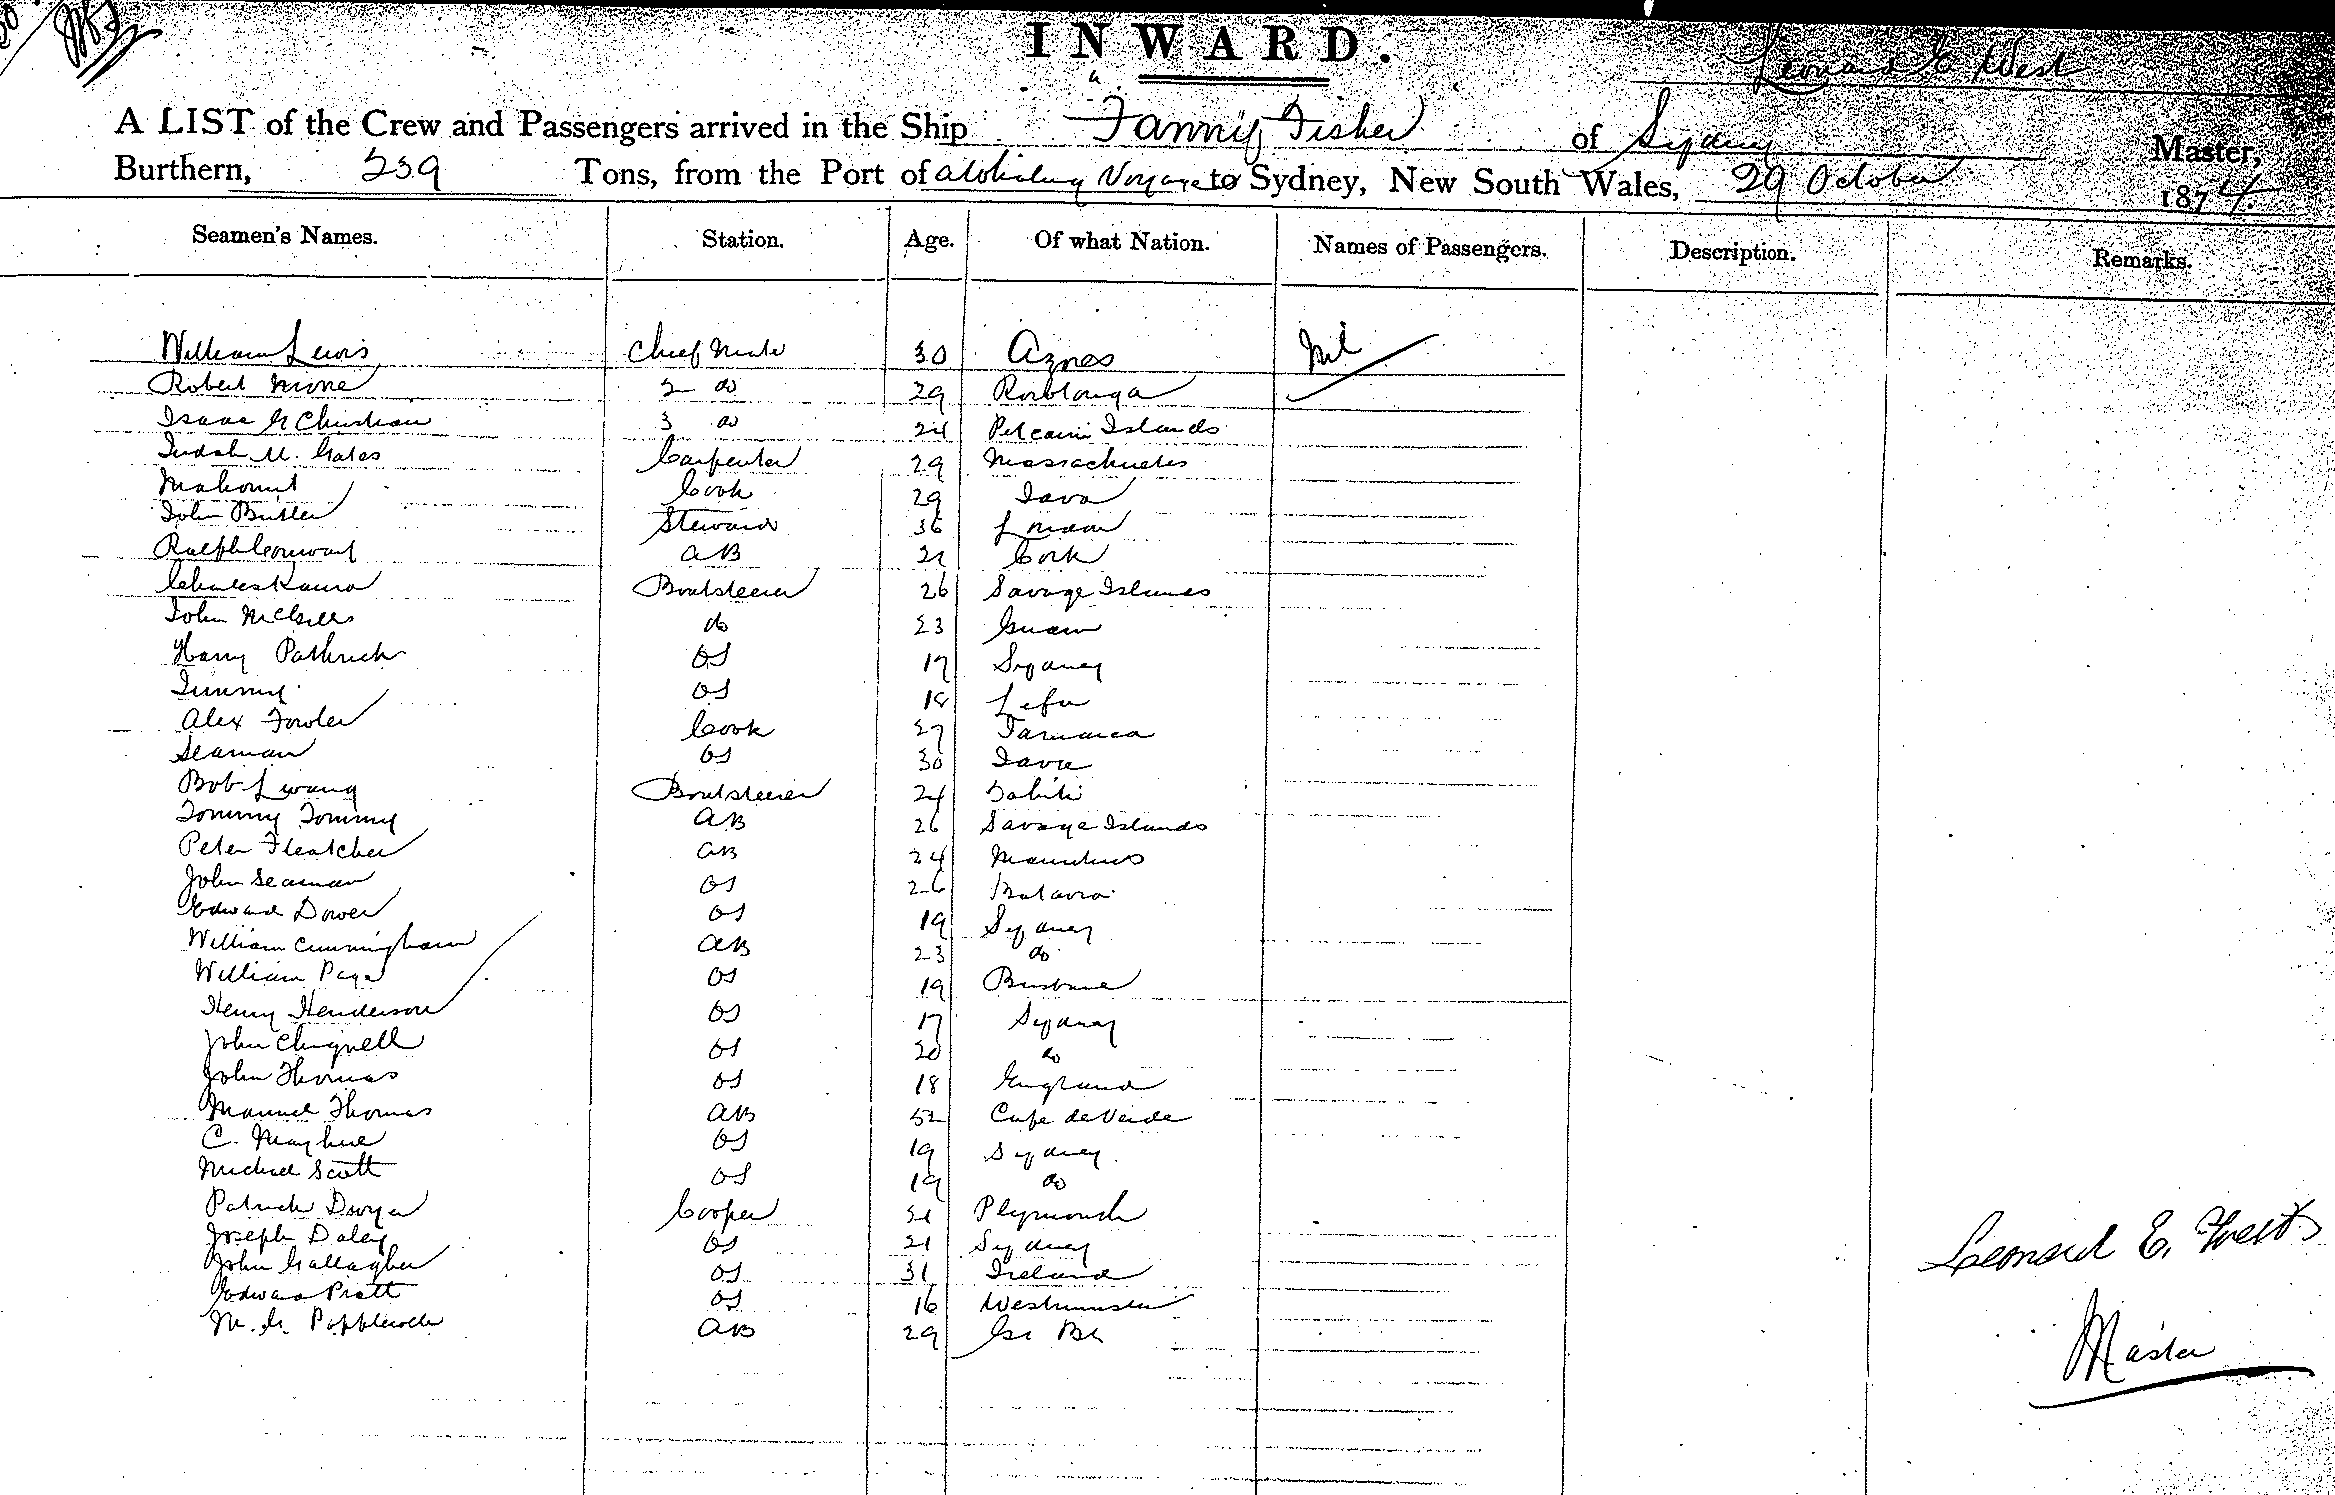 INWARD.
Leonard E West
A LIST of the Crew and Passengers arrived in the Ship Fanny Fisher of Sydney Master,
Burthern, 239 Tons, from the Port of a Whaling Voyage to Sydney, New South Wales, 29 October 1874.
Seamen's Names. Station. Age. Of what Nation. Names of Passengers. Description. Remarks.
William Lewis Chief Mate 30 Nil
Robert 2 do 29 Rorotonga
Isaac Christian 3 do 24 Pitcairn Islands
Judah M. Gates Carpenter 29 Massachusetes
Mahomit Cook 29 Java
John Butler Steward 36 London
Ralph AB Cork
Charles Boatsteerer 26 Savage Islands
John do 23 Guam
Harry Pathrick OS 17 Sydney
Jimmy OS 18 Lefu
Alex Fowler Cook 27 Jamaica
Seaman OS 30 Java
Bob Boatsteerer 24 Tahiti
Tommy Tommy AB 26 Savage Islands
Peter Fleatcher AB 24 Mauritius
John Seaman OS 26 Batavia
Edward Dower OS 19 Sydney
William Cunningham AB 23 do
William Page OS 19 Brisbane
Henry Henderson OS 17 Sydney
John Chignell OS 20 do
John Thomas OS 18 England
Manuel Thomas AB 52 Cape de Verde
C. Mayhue OS 19 Sydney
Michael Scott OS 19 do
Patrick Dwyer Cooper Plymouth
Joseph Daley OS 21 Sydney
John Gallagher OS 31 Ireland
Edward Pratt OS 16 Westminster
M. G. Popplewell AB 29
Leonard E. West
Master